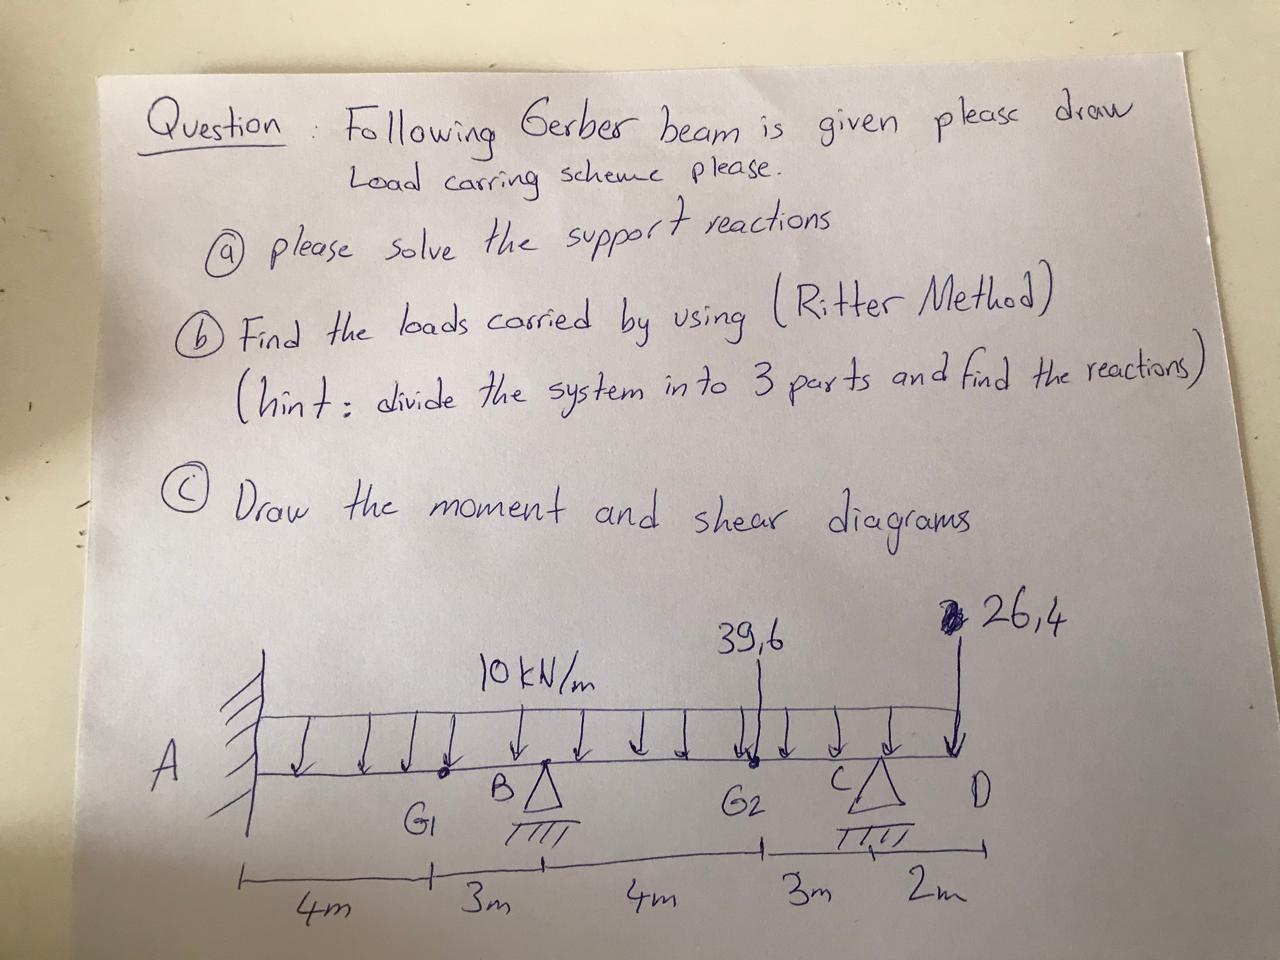 Question : Following Gerber beam is given please draw
Load carring scheme please.
a please solve the support reactions
b Find the loads carried by using (Ritter Method)
(hint : divide the system in to 3 parts and find the reactions)
c Draw the moment and shear diagrams
26,4
39,6
10 kN/m
A
B
C
D
G1
G2
4m
3m
4m
3m
2m